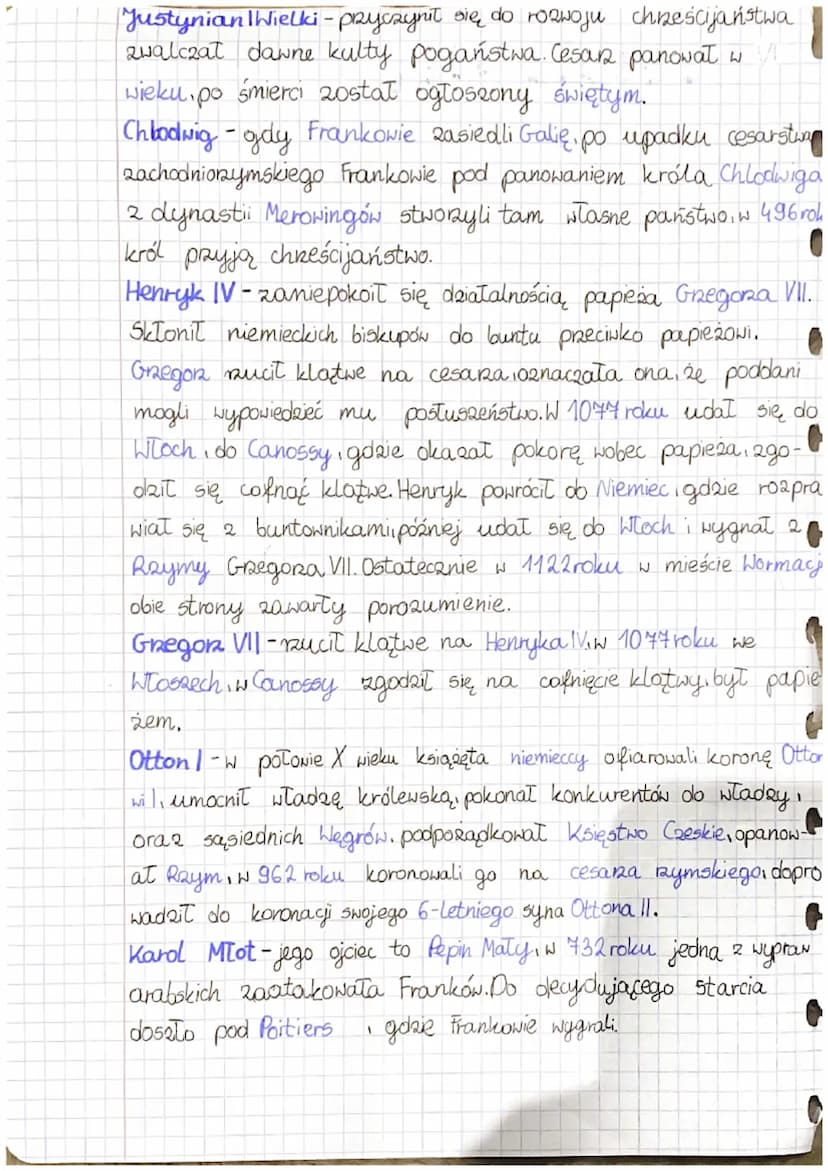 Justynian I Wielki - przyczynił się do rozwoju chrześcijaństwa
zwalczał dawne kulty pogaństwa. Cesarz panował w VI
wieku, po śmierci został ogłoszony świętym.
Chlodwig - gdy Frankowie zasiedli Galię, po upadku cesarstwa
zachodniorzymskiego Frankowie pod panowaniem króla Chlodwiga
z dynastii Merowingów stworzyli tam własne państwo, w 496 rok
król przyją chrześcijaństwo.
Henryk IV - zaniepokoił się działalnością papieża Grzegorza VII.
Skłonił niemieckich biskupów do buntu przeciwko papieżowi.
Grzegorz rzucił klątwe na cesarza, oznaczała ona, że poddani
mogli wypowiedzieć mu posłuszeństwo. W 1077 roku udał się do
Włoch, do Canossy, gdzie okazał pokorę wobec papieża, zgo-
dził się cofnąć klątwe. Henryk powrócił do Niemiec, gdzie rozpra
wiał się z buntownikami, później udał się do Włoch i wygnał z
Rzymy Grzegorza VII. Ostatecznie w 1122 roku w mieście Wormacj
obie strony zawarły porozumienie.
Grzegorz VII - rzucił klątwe na Henryka IV, w 1077 roku we
Włoszech, w Canossy zgodził się na cofnięcie klątwy, był papie
żem.
Otton I - w połowie X wieku książęta niemieccy ofiarowali koronę Otton
wi I, umocnił władzę królewską, pokonał konkurentów do władzy,
oraz sąsiednich Węgrów. podporządkował Księstwo Czeskie, opanow-
ał Rzym, w 962 roku koronowali go na cesarza rzymskiego, dopro
wadził do koronacji swojego 6-letniego syna Ottona II.
Karol Młot - jego ojciec to Pepin Mały, w 732 roku jedna z wypraw
arabskich zaatakowała Franków. Do decydującego starcia
doszło pod Poitiers , gdzie Frankowie wygrali.